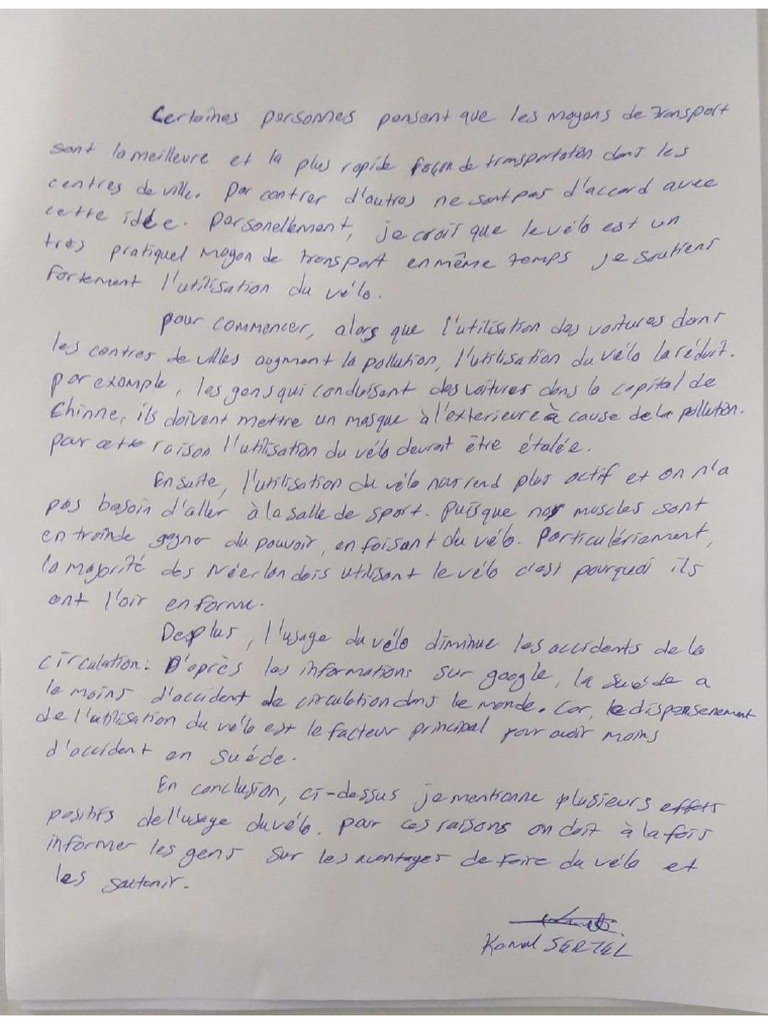 Certaines personnes pensent que les moyens de transport
sont la meilleure et la plus rapide façon de transportation dans les
centres de ville. Par contrer d'autres ne sont pas d'accord avec
cette idée. Personellement, je crois que le vélo est un
très pratiquel moyen de transport en même temps je soutiens
fortement l'utilisation du vélo.
Pour commencer, alors que l'utilisation des voitures dans
les centres de villes augment la pollution, l'utilisation du vélo la réduit.
Par exemple, les gens qui conduisent des voitures dans la capital de
Chinne, ils doivent mettre un masque à l'exterieure à cause de la pollution.
pour cette raison l'utilisation du vélo devrait être étalée.
Ensuite, l'utilisation du vélo nous rend plus actif et on n'a
pas besoin d'aller à la salle de sport. Puisque nos muscles sont
en train de gagner du pouvoir, en faisant du vélo. Particulériement,
la majorité des Néerlandais utilisent le vélo c'est pourquoi ils
ont l'air en forme.
De plus, l'usage du vélo diminue les accidents de la
circulation. D'après les informations sur google, la suéde a
le moins d'accident de circulation dans le monde. Car, le dispensenement
de l'utilisation du vélo est le facteur principal pour avoir moins
d'accident en suéde.
En conclusion, ci-dessus je mentionne plusieurs effets
positifs de l'usage du vélo. Pour ces raisons on doit à la fois
informer les gens sur les avantages de faire du vélo et
les soutenir.
Kemal SERTEL